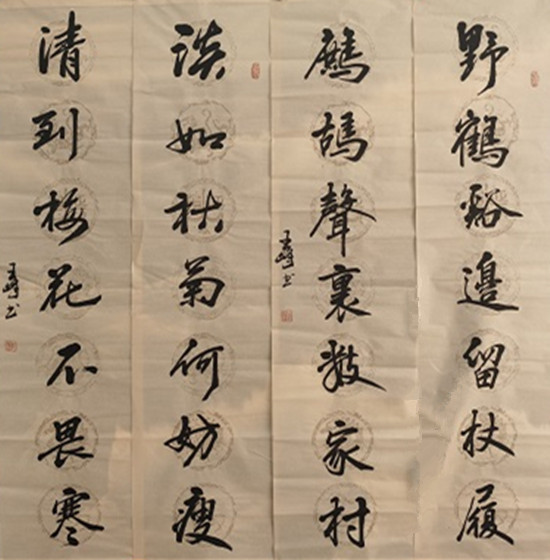 野鶴谿邊留杖履
鷓鴣聲裏數家村
王峰书
淡如秋菊何妨瘦
清到梅花不畏寒
王峰书